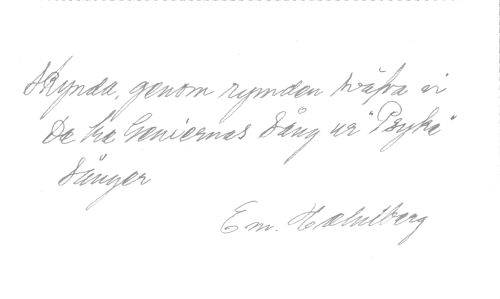 Skynda, genom rymden sväfva vi
De tre Geniernas Sång ur "Psyke"
Sånger
Em. Holmberg